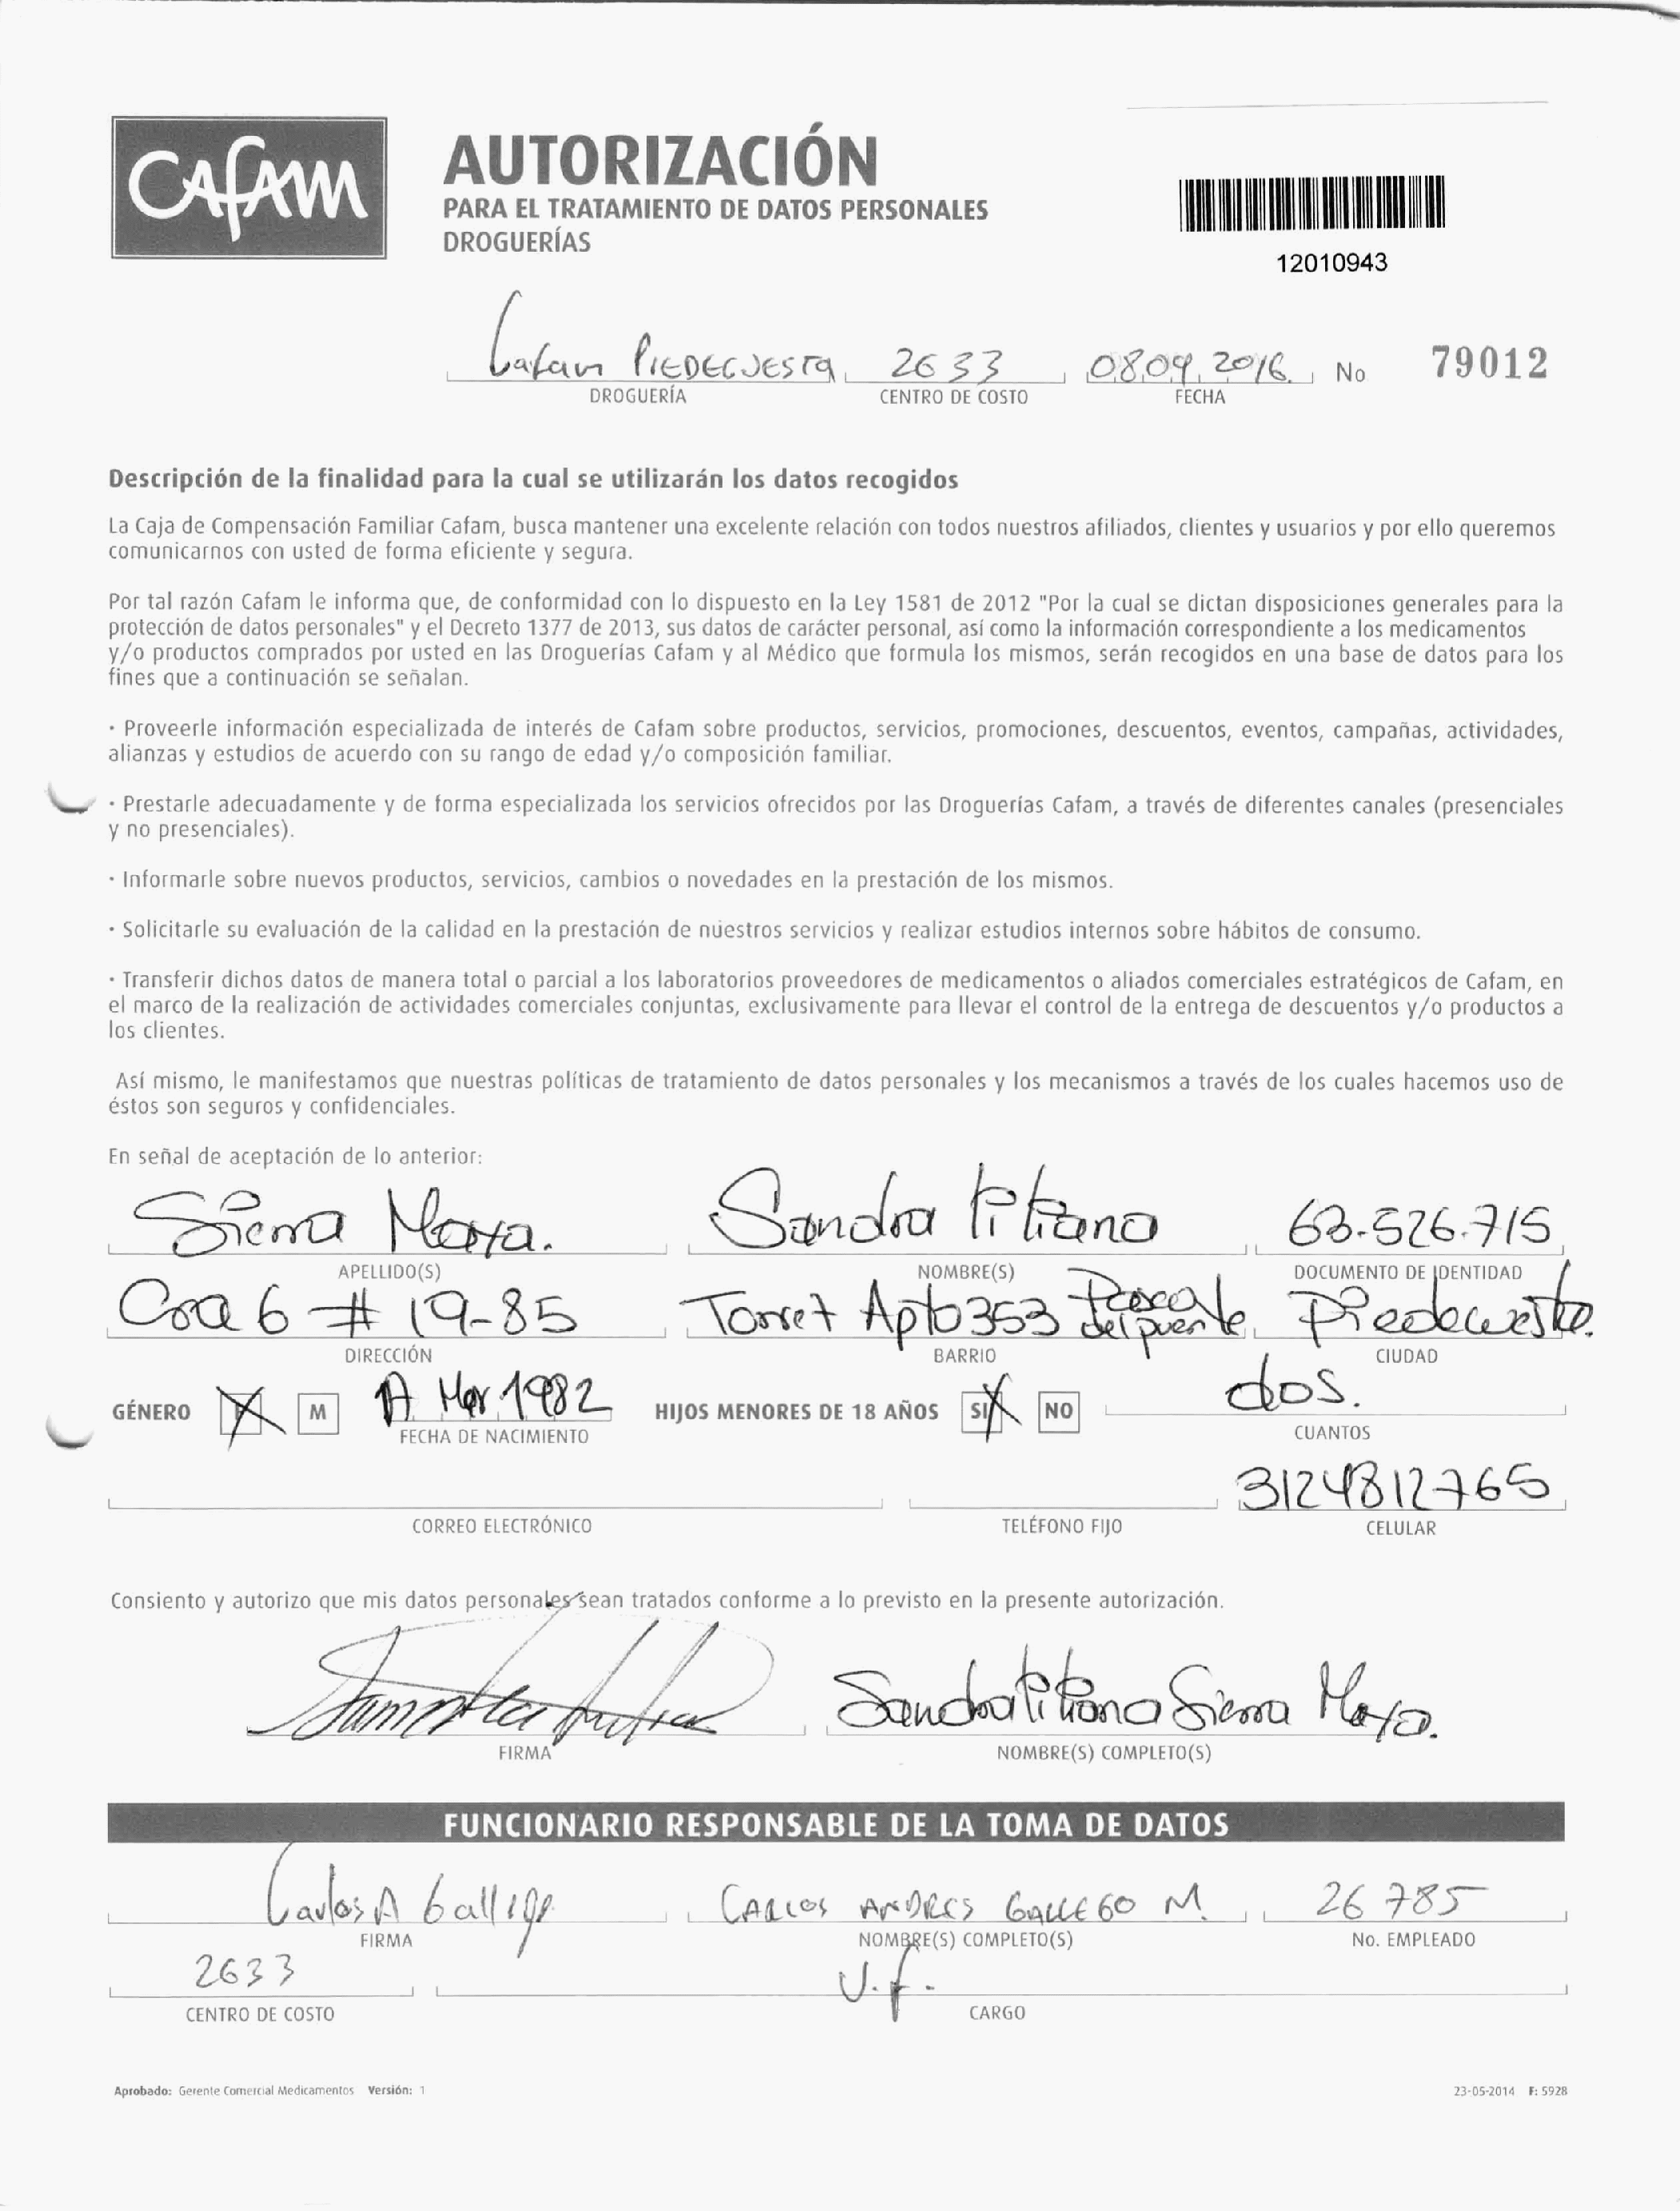 CAFAM
AUTORIZACIÓN
PARA EL TRATAMIENTO DE DATOS PERSONALES
DROGUERÍAS
12010943
Cafam PIEDECUESTA 2633 08 09 2016 No 79012
DROGUERÍA CENTRO DE COSTO FECHA
Descripción de la finalidad para la cual se utilizarán los datos recogidos
La Caja de Compensación Familiar Cafam, busca mantener una excelente relación con todos nuestros afiliados, clientes y usuarios y por ello queremos
comunicarnos con usted de forma eficiente y segura.
Por tal razón Cafam le informa que, de conformidad con lo dispuesto en la Ley 1581 de 2012 "Por la cual se dictan disposiciones generales para la
protección de datos personales" y el Decreto 1377 de 2013, sus datos de carácter personal, así como la información correspondiente a los medicamentos
y/o productos comprados por usted en las Droguerías Cafam y al Médico que formula los mismos, serán recogidos en una base de datos para los
fines que a continuación se señalan.
· Proveerle información especializada de interés de Cafam sobre productos, servicios, promociones, descuentos, eventos, campañas, actividades,
alianzas y estudios de acuerdo con su rango de edad y/o composición familiar.
· Prestarle adecuadamente y de forma especializada los servicios ofrecidos por las Droguerías Cafam, a través de diferentes canales (presenciales
y no presenciales).
· Informarle sobre nuevos productos, servicios, cambios o novedades en la prestación de los mismos.
· Solicitarle su evaluación de la calidad en la prestación de nuestros servicios y realizar estudios internos sobre hábitos de consumo.
· Transferir dichos datos de manera total o parcial a los laboratorios proveedores de medicamentos o aliados comerciales estratégicos de Cafam, en
el marco de la realización de actividades comerciales conjuntas, exclusivamente para llevar el control de la entrega de descuentos y/o productos a
los clientes.
Así mismo, le manifestamos que nuestras políticas de tratamiento de datos personales y los mecanismos a través de los cuales hacemos uso de
éstos son seguros y confidenciales.
En señal de aceptación de lo anterior:
Sierra Maya. Sandra 63.526.715
APELLIDO(S) NOMBRE(S) DOCUMENTO DE IDENTIDAD
Cra 6 # 19-85 Apto 353 del puente Piedecuesta.
DIRECCIÓN BARRIO CIUDAD
GÉNERO F M Mar 1982 HIJOS MENORES DE 18 AÑOS SI NO dos.
FECHA DE NACIMIENTO CUANTOS
3124812765
CORREO ELECTRÓNICO TELÉFONO FIJO CELULAR
Consiento y autorizo que mis datos personales sean tratados conforme a lo previsto en la presente autorización.
Sandra Sierra Maya.
FIRMA NOMBRE(S) COMPLETO(S)
FUNCIONARIO RESPONSABLE DE LA TOMA DE DATOS
Carlos A Gallego CARLOS ANDRES GALLEGO M. 26 785
FIRMA NOMBRE(S) COMPLETO(S) No. EMPLEADO
2633 V.f.
CENTRO DE COSTO CARGO
Aprobado: Gerente Comercial Medicamentos Versión: 1 23-05-2014 F: 5928